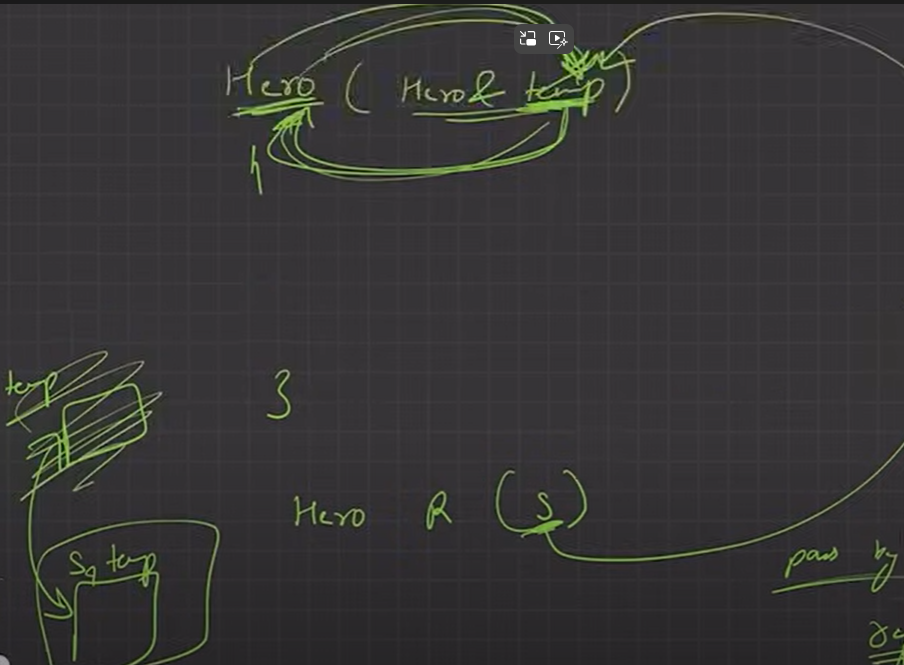 Hero ( Hero& temp )
{
temp
}
Hero R (S)
S, temp
pass by